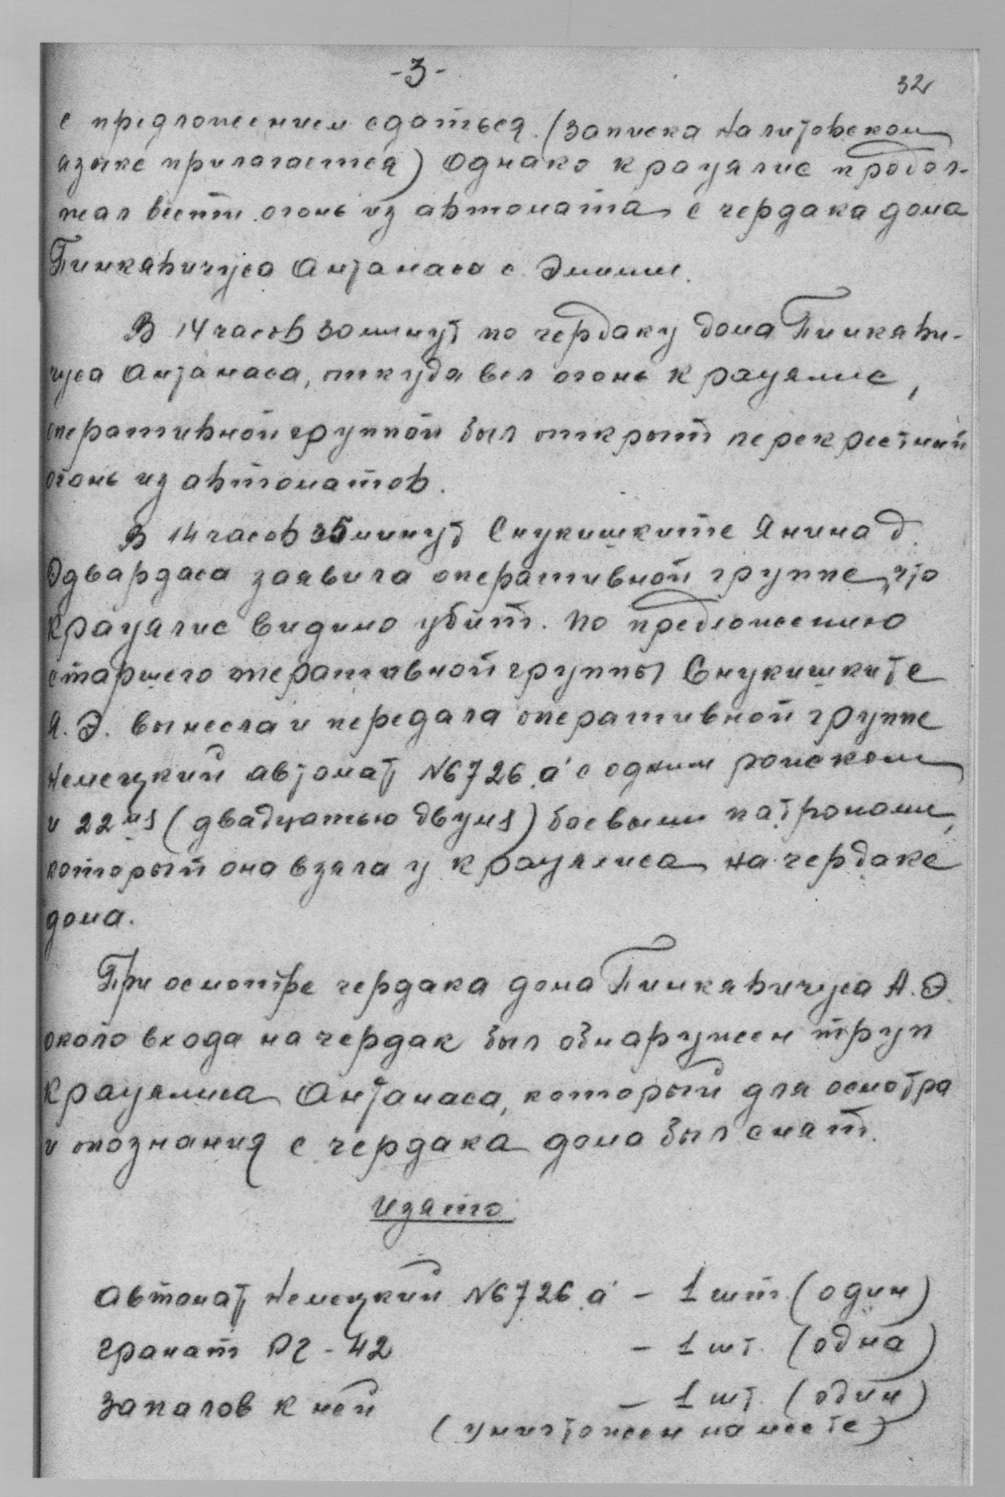 -3-
32
с предложением сдаться. (Записка на литовском
языке прилагается) Однако Крауялис продол-
жал вести огонь из автомата с чердака дома
Пинкявичуса Антанаса с. Эмини.
В 14 часов 30 минут по чердаку дома Пинкяви-
чуса Антанаса, откуда вел огонь Крауялис,
оперативной группой был открыт перекрестный
огонь из автоматов.
В 14 часов 35 минут Снукишките Янина д.
Эдвардаса заявила оперативной группе, что
Крауялис видимо убит. По предложению
старшего оперативной группы Снукишките
Я. Э. вынесла и передала оперативной группе
немецкий автомат №6726 а с одним рожком
и 22мя (двадцатью двумя) боевыми патронами,
который она взяла у Крауялиса на чердаке
дома.
При осмотре чердака дома Пинкявичуса А. Э.
около входа на чердак был обнаружен труп
Крауялиса Антанаса, который для осмотра
и опознания с чердака дома был снят.
Изято
Автомат немецкий №6726 а – 1 шт. (один)
Гранат РГ-42 – 1 шт. (одна)
Запалов к ней – 1 шт. (один)
(уничтожен на месте)